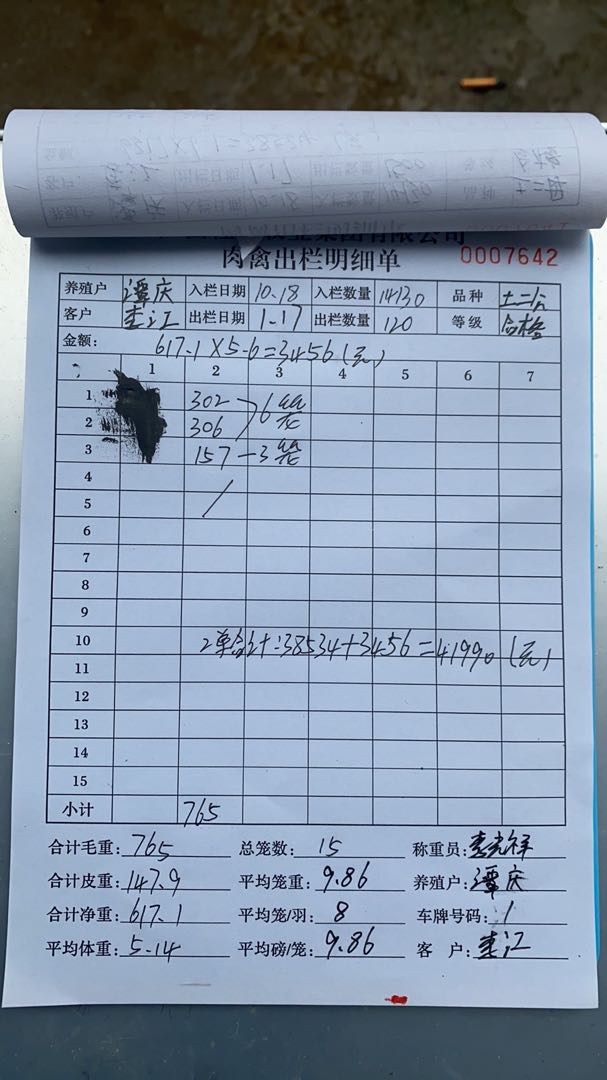 集团有限公司
肉禽出栏明细单 0007642
养殖户 潭庆 入栏日期 10.18 入栏数量 14130 品种 土二
客户 出栏日期 1.17 出栏数量 120 等级 合格
金额: 617.1×5.6=3456(元)
1 2 3 4 5 6 7
1 302
2 306 6笼
3 157-3笼
4
5
6
7
8
9
10 2单合计:38534+3456=41990(元)
11
12
13
14
15
小计 765
合计毛重: 765 总笼数: 15 称重员:
合计皮重: 147.9 平均笼重: 9.86 养殖户: 潭庆
合计净重: 617.1 平均笼/羽: 8 车牌号码: /
平均体重: 5.14 平均磅/笼: 9.86 客 户: